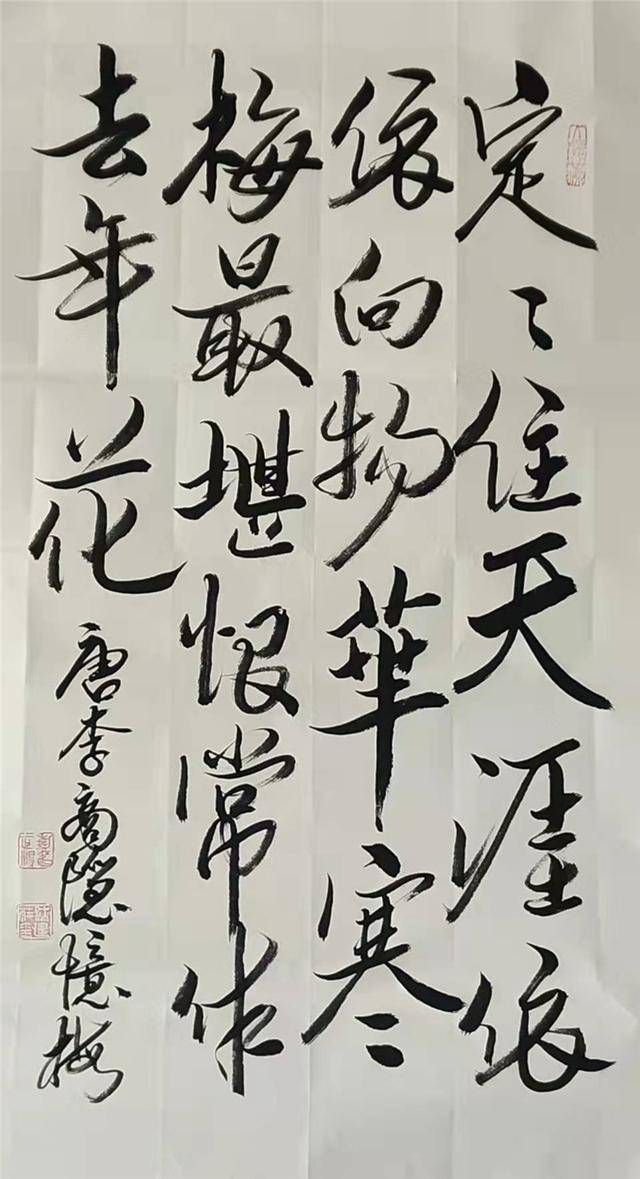 定〻住天涯依
依向物華寒
梅最堪恨常作
去年花
唐李商隱憶梅